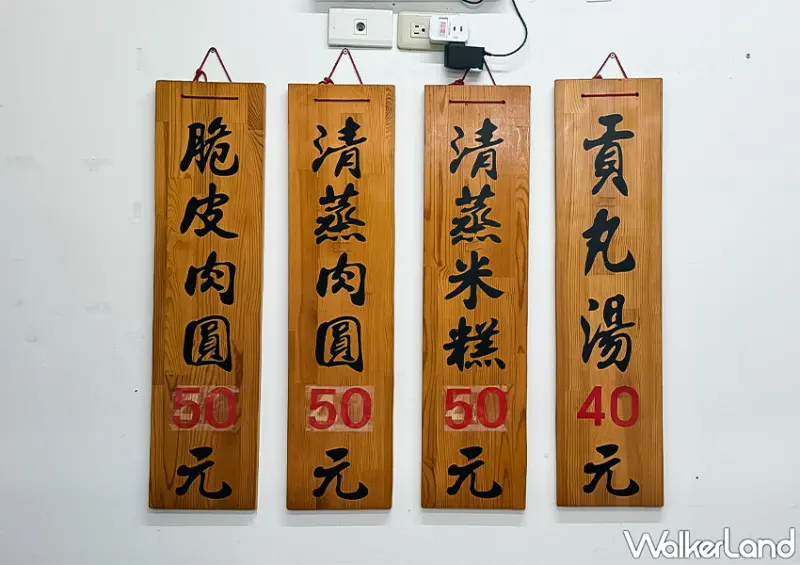 脆皮肉圓50元
清蒸肉圓50元
清蒸米糕50元
貢丸湯40元
WalkerLand